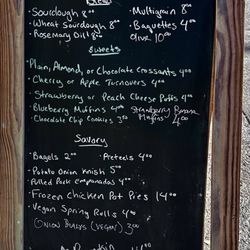 Bread
Sourdough 8.00 Multigrain 8.00
Wheat Sourdough 8.00 Baguettes 4.00
Rosemary Dill 8.00 Olive 10.00
Sweets
Plain, Almond, or Chocolate Croissants 4.00
Cherry or Apple Turnovers 4.00
Strawberry or Peach Cheese Puffs 4.00
Blueberry Muffins 4.00 Strawberry Banana
Chocolate Chip Cookies 3.00 Muffins 4.00
Savory
Bagels 2.00 Pretzels 4.00
Potato Onion Knish 5.00
Pulled Pork Empanadas 4.00
Frozen Chicken Pot Pies 14.00
Vegan Spring Rolls 4.00
Onion (vegan) 3.00